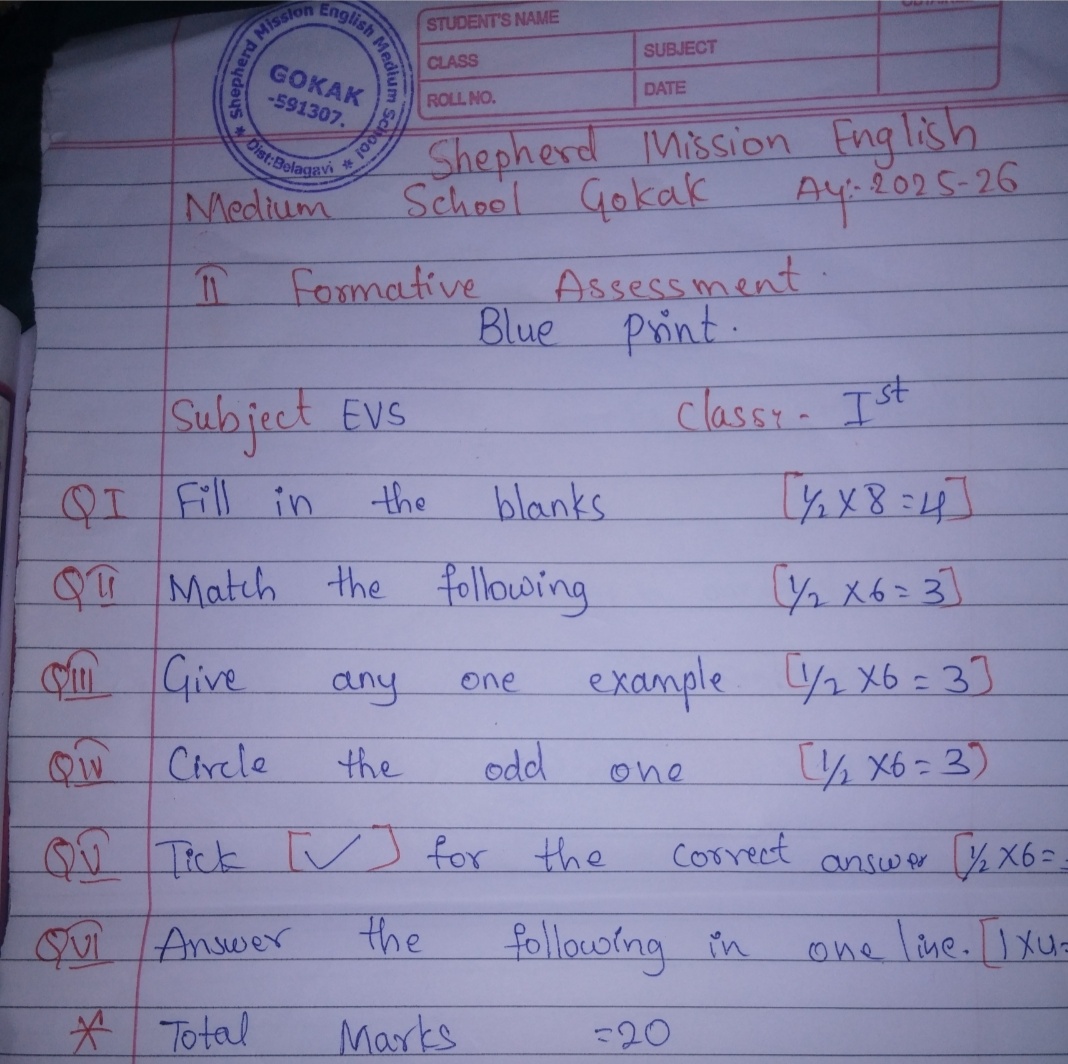 Shepherd Mission English Medium School
GOKAK
-591307.
* Dist:Belagavi *
STUDENT'S NAME
CLASS
SUBJECT
ROLL NO.
DATE
Shepherd Mission English
Medium School Gokak Ay:- 2025-26
II Formative Assessment.
Blue print.
Subject EVS Class:- Ist
QI Fill in the blanks [½ X 8 = 4]
QII Match the following [½ X 6 = 3]
QIII Give any one example [½ X 6 = 3]
QIV Circle the odd one [½ X 6 = 3)
QV Tick [✓] for the correct answer [½ X 6 =
QVI Answer the following in one line. [1 X 4 =
* Total Marks = 20